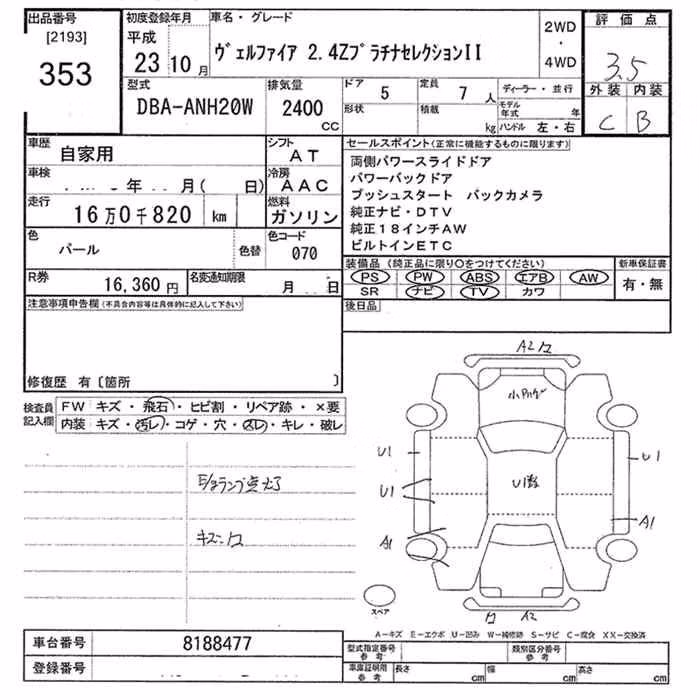 出品番号
[2193]
353
初度登録年月
平成
23 10 月
車名・グレード
ヴェルファイア 2.4ZプラチナセレクションII
2WD
・
4WD
評価点
3.5
外装 内装
C B
型式
DBA-ANH20W
排気量
2400
CC
ドア 5
形状
定員 7 人
積載 kg
ディーラー・並行
モデル年式 年
ハンドル 左・右
車歴 自家用
シフト AT
車検 年 月( 日)
冷房 AAC
走行 16万0千820 km
燃料 ガソリン
色 パール
色替
色コード 070
R券 16,360 円
名変通知期限 月 日
セールスポイント(正常に機能するものに限ります)
両側パワースライドドア
パワーバックドア
プッシュスタート バックカメラ
純正ナビ・DTV
純正18インチAW
ビルトインETC
装備品(純正品に限り○をつけてください)
PS PW ABS エアB AW
SR ナビ TV カワ
新車保証書
有・無
後日品
注意事項申告欄(不具合内容等は具体的に記入して下さい)
修復歴 有〔箇所 〕
検査員記入欄
FW キズ・飛石・ヒビ割・リペア跡・×要
内装 キズ・汚レ・コゲ・穴・スレ・キレ・破レ
キズ
A2
U1
U1
A1
U1
U1
A1
スペア
A-キズ E-エクボ U-凹み W-補修跡 S-サビ C-腐食 XX-交換済
車台番号 8188477
登録番号
型式指定番号 参考
類別区分番号 参考
車庫証明用 参考 長さ cm 幅 cm 高さ cm